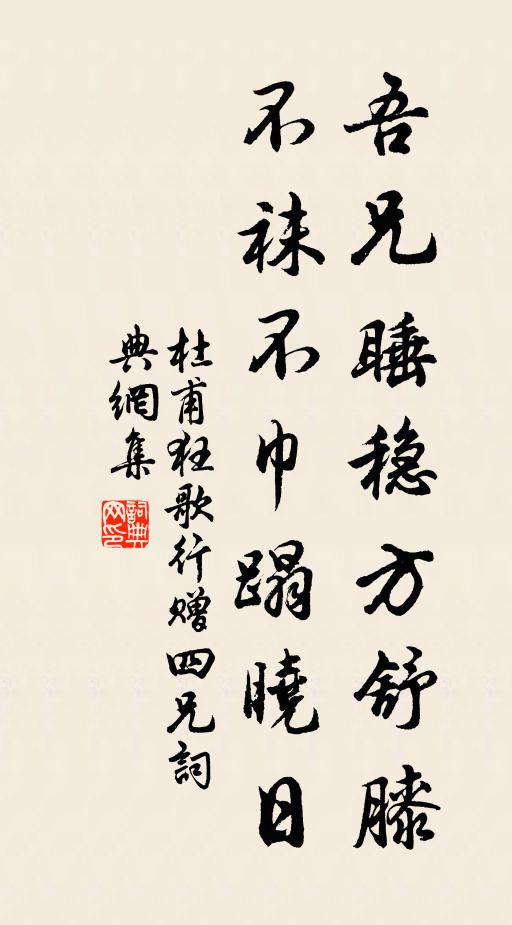 吾兄睡穏方舒膝
不袜不巾蹋曉日
杜甫狂歌行赠四兄詞
典網集
詞典网印